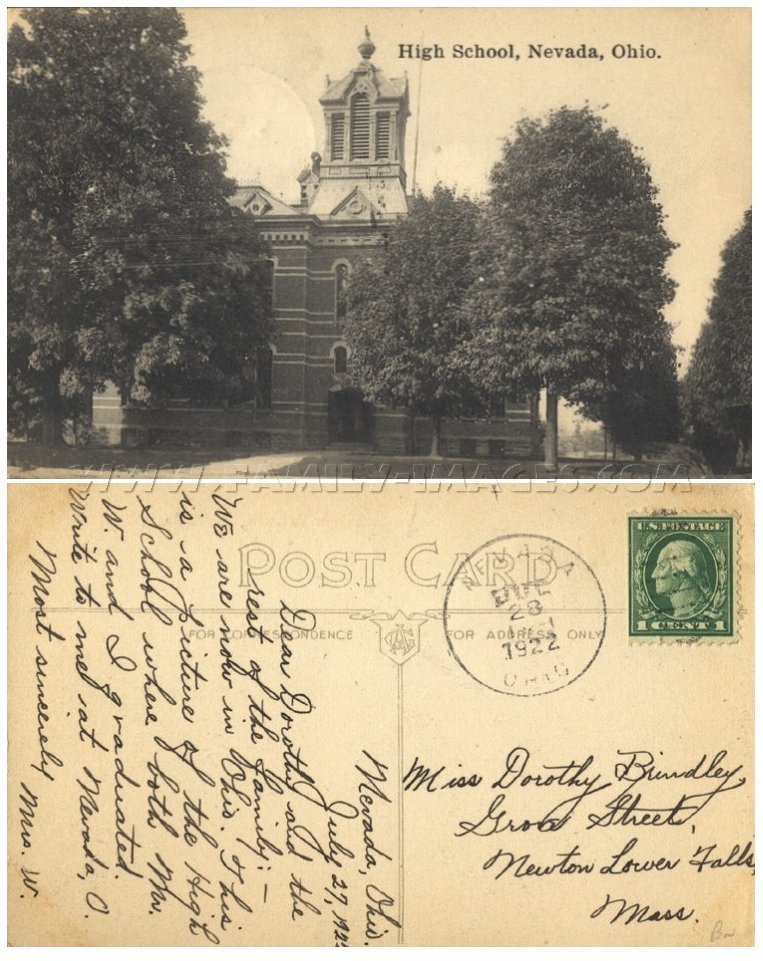 High School, Nevada, Ohio.
WWW.FAMILY-IMAGES.COM
POST CARD
FOR CORRESPONDENCE
FOR ADDRESS ONLY
NEVADA
28
1922
OHIO
U.S. POSTAGE
1 CENT 1
Nevada, Ohio.
July 27, 192
Dear Dorothy and the
rest of the Family:—
We are now in Ohio. This
is a picture of the High
School where both Mr.
W. and I graduated.
Write to me at Nevada, O.
Most sincerely Mrs. W.
Miss Dorothy Brindley,
Street,
Newton Lower Falls,
Mass.